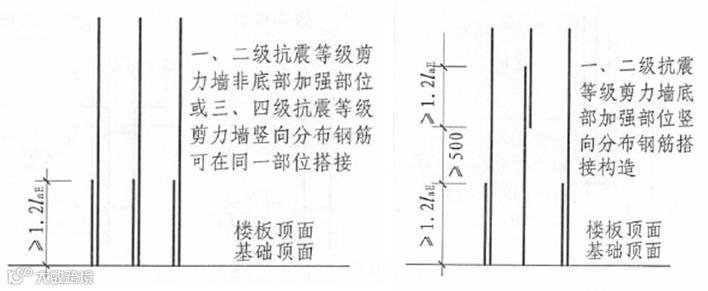 一、二级抗震等级剪
力墙非底部加强部位
或三、四级抗震等级
剪力墙竖向分布钢筋
可在同一部位搭接
≥1.2laE
楼板顶面
基础顶面
一、二级抗震
等级剪力墙底
部加强部位竖
向分布钢筋搭
接构造
≥1.2laE
≥500
≥1.2laE
楼板顶面
基础顶面
大数跨境